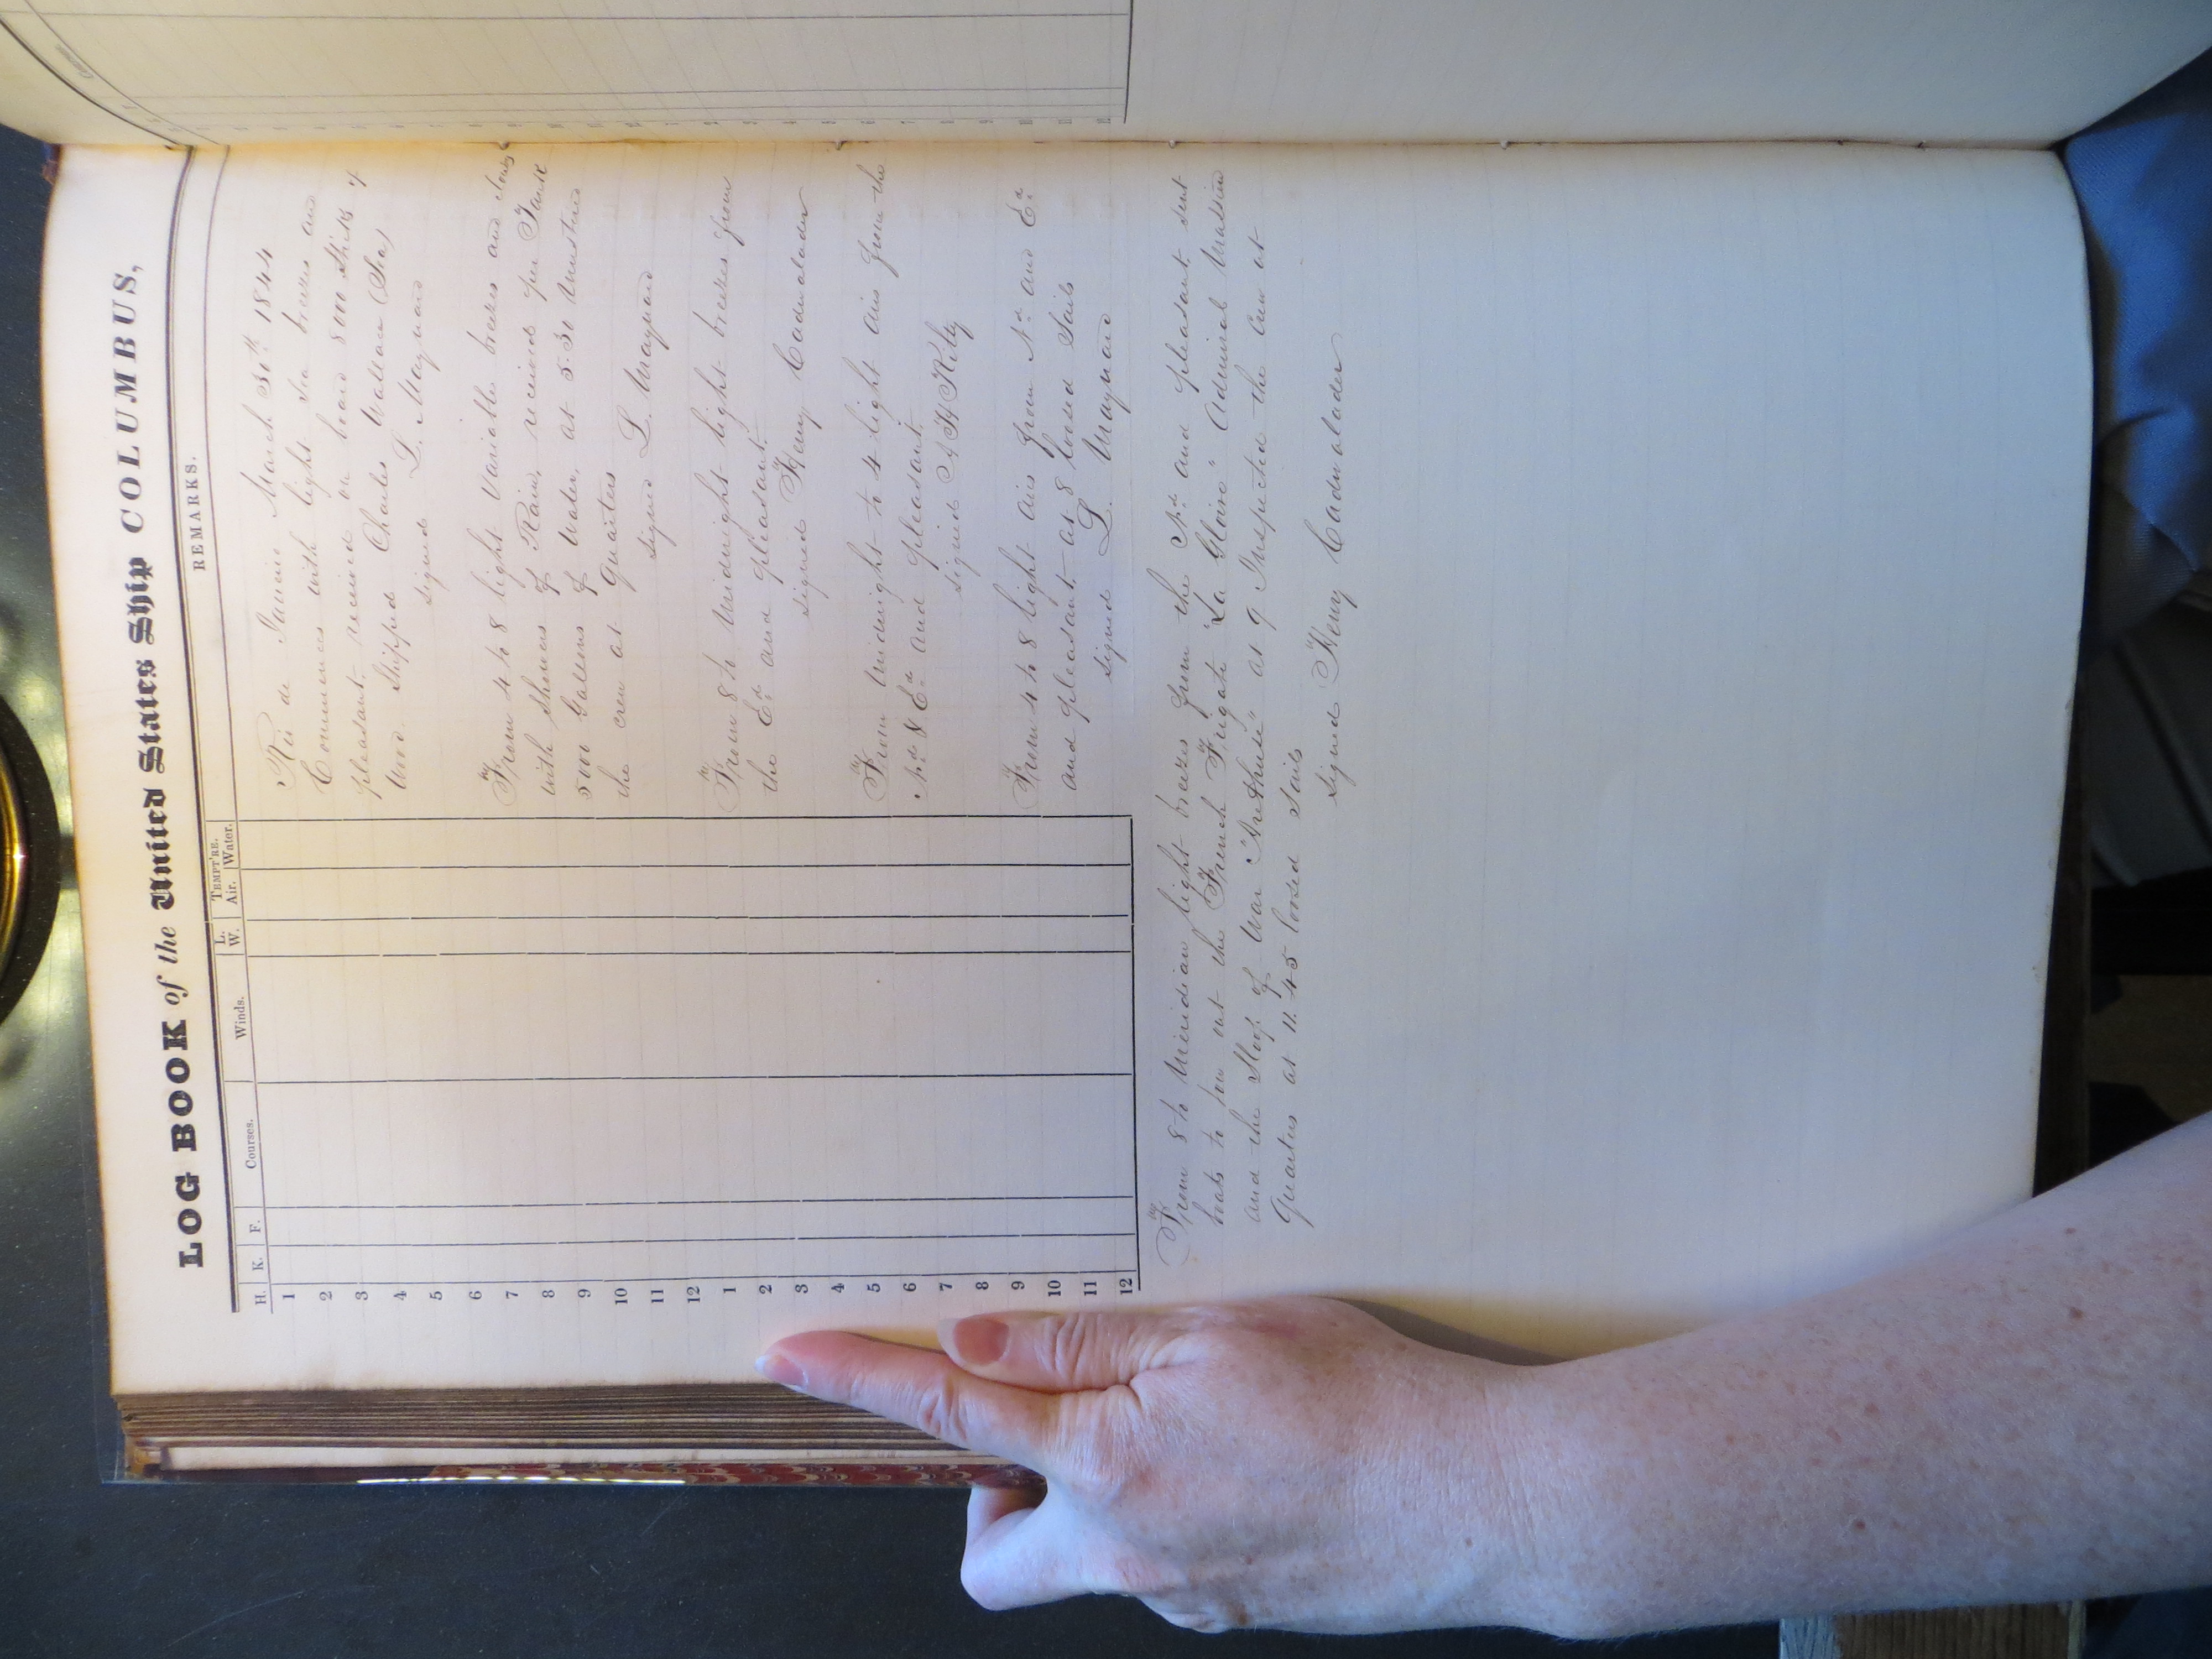 LOG BOOK of the United States Ship COLUMBUS,
H. K. F. Courses. Winds. L. W. TEMPT'RE. Air. Water. REMARKS.
1
2
3
4
5
6
7
8
9
10
11
12
1
2
3
4
5
6
7
8
9
10
11
12
Rio de Janeiro March 30th 1844
Commences with light sea breezes and
pleasant. received on board 8000 Sticks of
Wood. Shipped Charles Wallace (Sea)
signed L. Maynard
From 4 to 8 light Variable breezes and
with Showers of Rain. received per Tank
5000 Gallons of Water. at 5.30 Mustered
the crew at Quarters
signed L. Maynard
From 8 to Midnight light breezes from
the Ed and pleasant.
signed Henry Cadwalader
From Midnight to 4 light airs from the
Nd & Ed and pleasant.
signed A H Kilty
From 4 to 8 light airs from Nd and Ed
and pleasant. at 8 loosed Sails
signed L. Maynard
From 8 to Meridian light breezes from the Nd and pleasant. sent
boats to tow out the French Frigate "La Gloire" Admiral
and the Sloop of War "Arethuse" at 9 Inspected the Crew at
Quarters at 11.45 loosed Sails
signed Henry Cadwalader